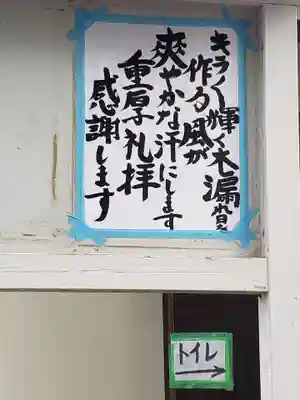 キラキラ輝く木漏れ日を
作る風が
爽やかな汗にします
重厚礼拝
感謝します
トイレ